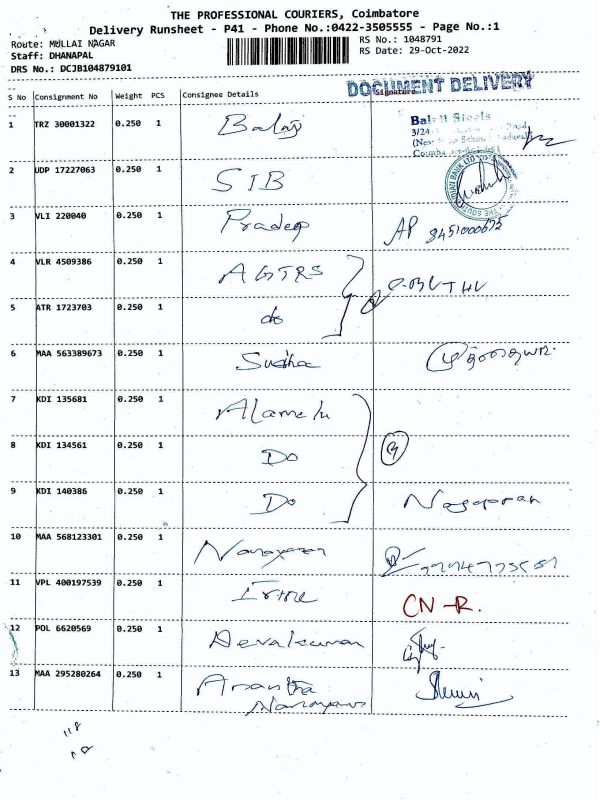 THE PROFESSIONAL COURIERS, Coimbatore
Delivery Runsheet - P41 - Phone No.:0422-3505555 - Page No.:1
Route: MULLAI NAGAR
RS No.: 1048791
Staff: DHANAPAL
RS Date: 29-Oct-2022
DRS No.: DCJB104879101
DOCUMENT DELIVERY
S No Consignment No Weight PCS Consignee Details Signature
1 TRZ 30001322 0.250 1 Balaji
Steels
3/24
2 UDP 17227063 0.250 1 SIB
3 VLI 220040 0.250 1 Pradeep AP
4 VLR 4509386 0.250 1 AGTRS
5 ATR 1723703 0.250 1 do
6 MAA 563389673 0.250 1 Sudha
7 KDI 135681 0.250 1 Alamelu
8 KDI 134561 0.250 1 Do
9 KDI 140386 0.250 1 Do
10 MAA 568123301 0.250 1 Narayanan
11 VPL 400197539 0.250 1 CN-R.
12 POL 6620569 0.250 1 Devakumar
13 MAA 295280264 0.250 1 Anantha
Narayanan